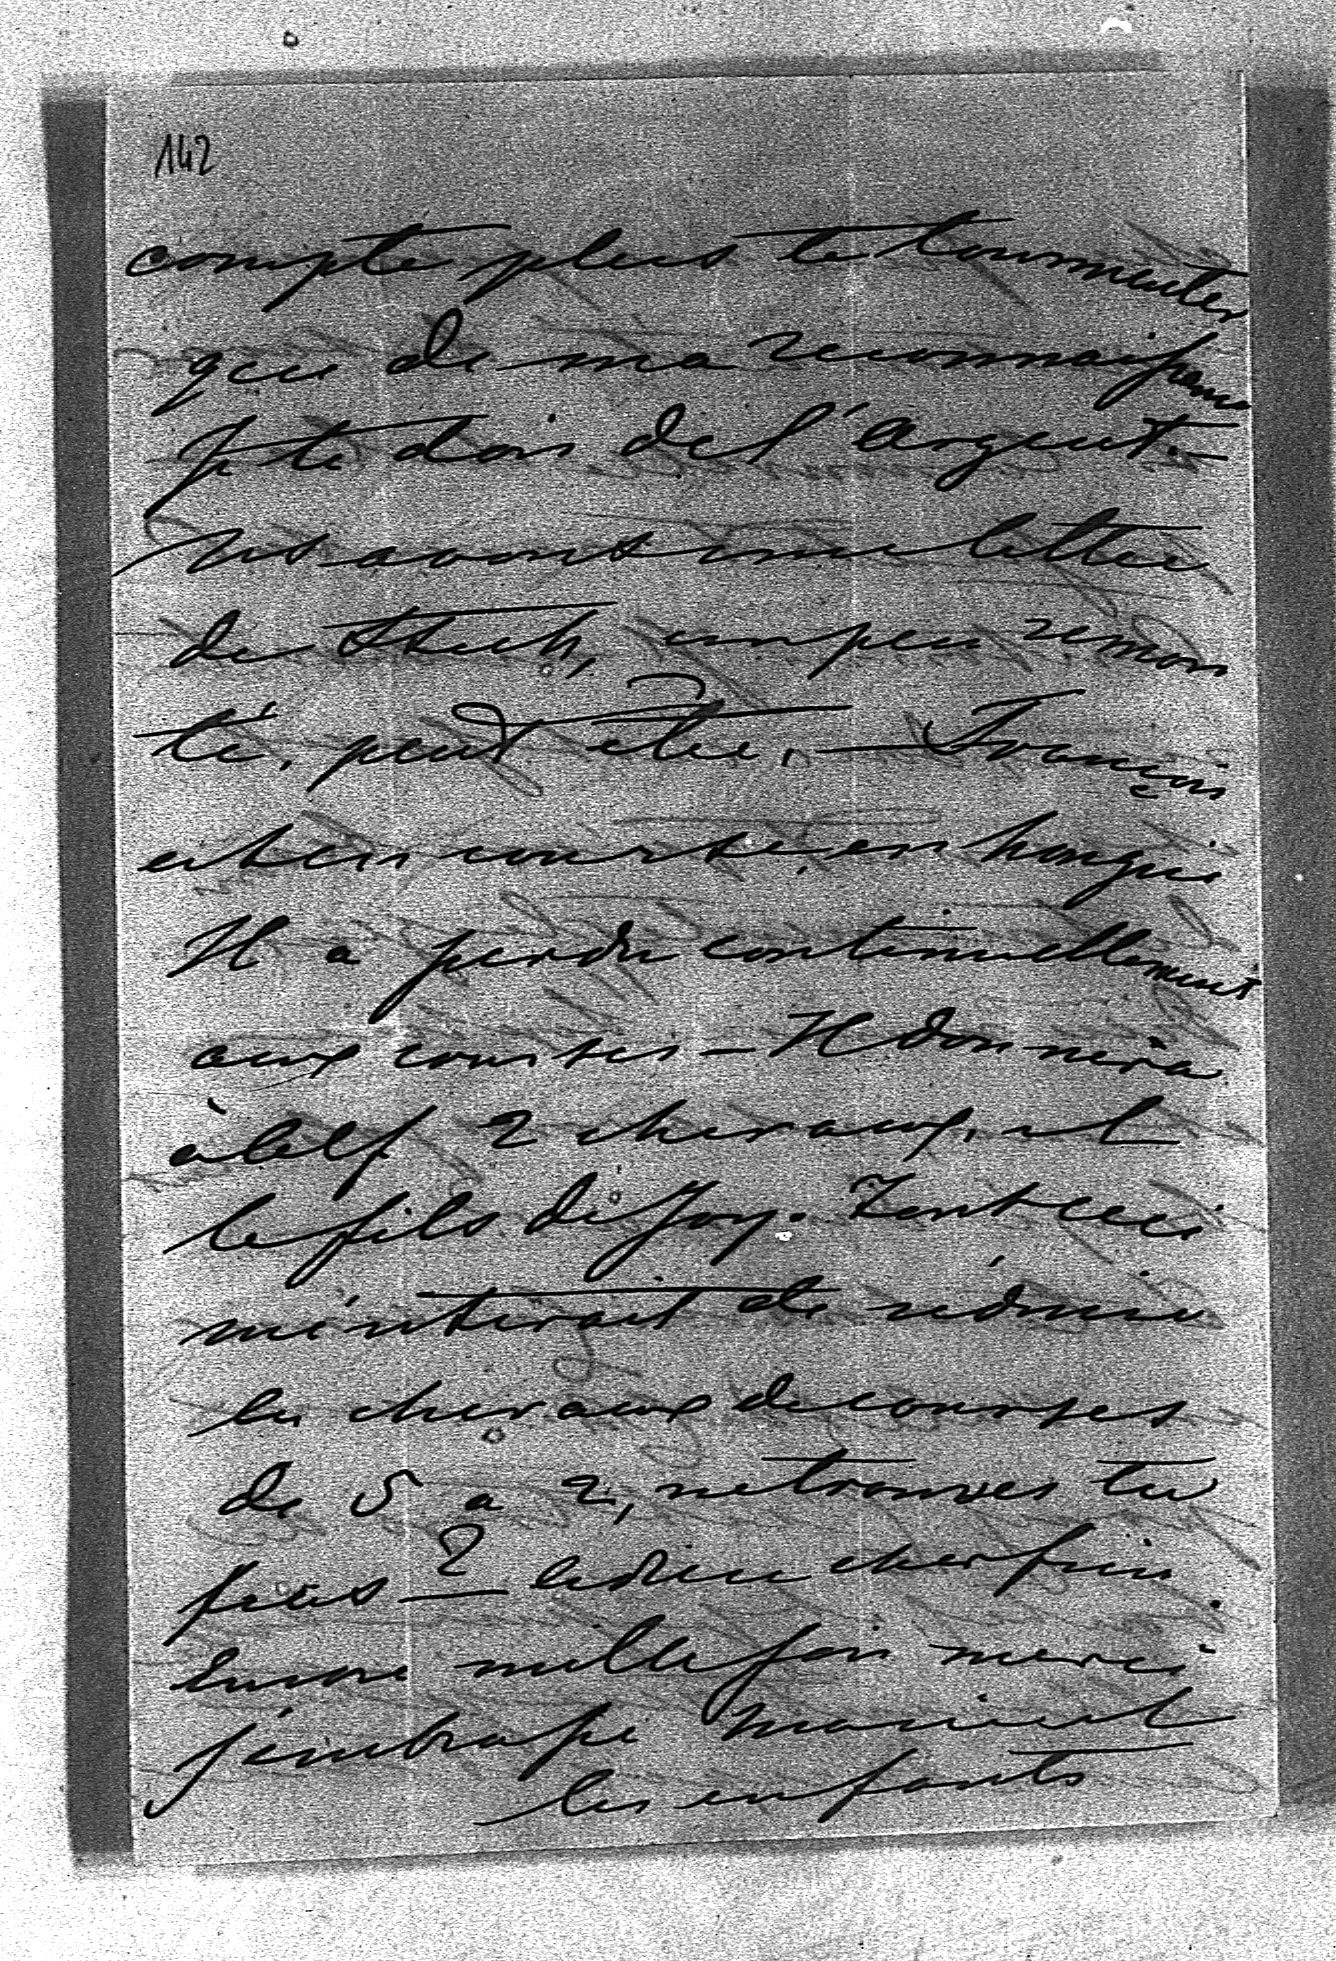 142
compte plus te tourmenter
que de ma reconnaissance
Je te dois de l'argent. –
Ns avons une lettre
de Stech, un peu remon
té, peut être. – François
est en course, en hongrie
Il a perdu continuellement
aux courses – Il donnera
à 2 chevaux, et
le fils de Joy. Tout ceci
de réduire
les chevaux de courses
de 5 a 2, ne trouves tu
pas ? adieu cher
Encore mille fois merci
j'embrasse Marie et
les enfants